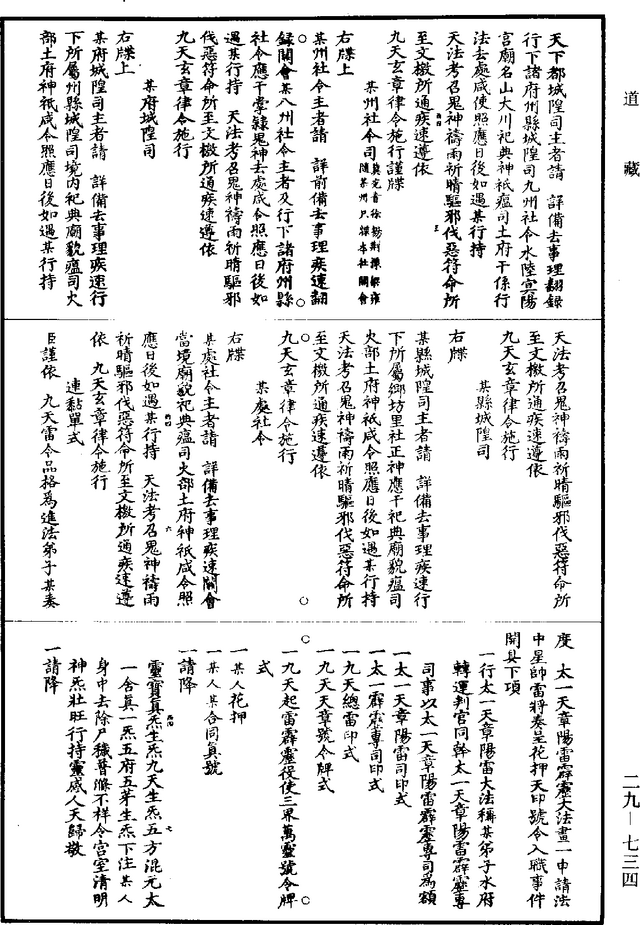 道藏
天下都城隍司主者請　詳備去事理翻錄
行下諸府州縣城隍司九州社令水陸冥陽
宮廟名山大川祀典神祇瘟司土府干係行
法去處咸使照應日後如遇某行持
天法考召鬼神禱雨祈晴驅邪伐惡符命所
至文檄所通疾速遵依
九天玄章律令施行謹牒
某州社令司
右牒上
某州社令主者請　詳前備去事理疾速翻
錄關會某八州社令主者及行下諸府州縣
社令應干掌隸鬼神去處咸令照應日後如
遇某行持　天法考召鬼神禱雨祈晴驅邪
伐惡符命所至文檄所通疾速遵依
九天玄章律令施行
某府城隍司
右牒上
某府城隍司主者請　詳備去事理疾速行
下所屬州縣城隍司境內祀典廟貌瘟司火
部土府神祇咸令照應日後如遇某行持
天法考召鬼神禱雨祈晴驅邪伐惡符命所
至文檄所通疾速遵依
九天玄章律令施行
某縣城隍司
右牒
某縣城隍司主者請　詳備去事理疾速行
下所屬鄉坊里社正神應干祀典廟貌瘟司
火部土府神祇咸令照應日後如遇某行持
天法考召鬼神禱雨祈晴驅邪伐惡符命所
至文檄所通疾速遵依
九天玄章律令施行
某處社令
右牒
某處社令主者請　詳備去事理疾速關會
當境廟貌祀典瘟司火部土府神祇咸令照
應日後如遇某行持　天法考召鬼神禱雨
祈晴驅邪伐惡符命所至文檄所通疾速遵
依　九天玄章律令施行
連黏單式
臣謹依　九天雷令品格爲進法弟子某奏
度　太一天章陽雷霹靂大法畫一申請法
中星帥雷將奏呈花押天印號令入職事件
開具下項
一行太一天章陽雷大法稱某弟子水府
轉運判官同幹太一天章陽雷霹靂專
司事以太一天章陽雷霹靂專司爲額
一太一天章陽雷司印式
一太一霹靂專司印式
一九天總雷印式
一九天天章號令牌式
一九天起雷霹靂役使三界萬靈號令牌
式
一某人花押
一某人某合同眞號
一請降
靈寶眞炁生炁九天生炁五方混元太
一含眞一炁五府五芽生炁下注某人
身中去除尸穢普滌不祥令宮室清明
神炁壯旺行持靈感人天歸敬
一請降
二九—七三四